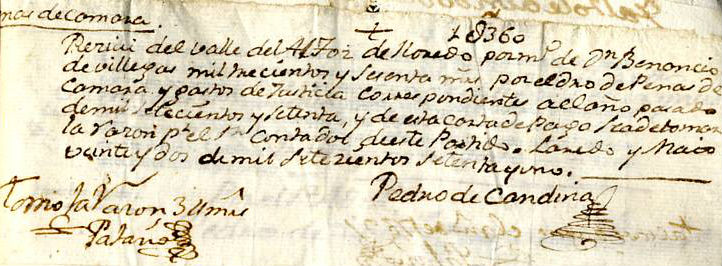 nas de Camara.
1 U 360
Reciui del valle del Alfoz de Lloredo por mº de Dn Benancio
de villegas mil trecientos y sesenta mrs por el dro de Penas de
Camara y gastos de Justicia correspondiente al año pasado
de mil setecientos y setenta, y de esta carta de Pago se ha de tomar
la Razon pr el Sr Contador de este Partido. Laredo y Maio
veinte y dos de mil setecientos setenta y uno.
Pedro de Candina
Tomo la Razon
Palacio